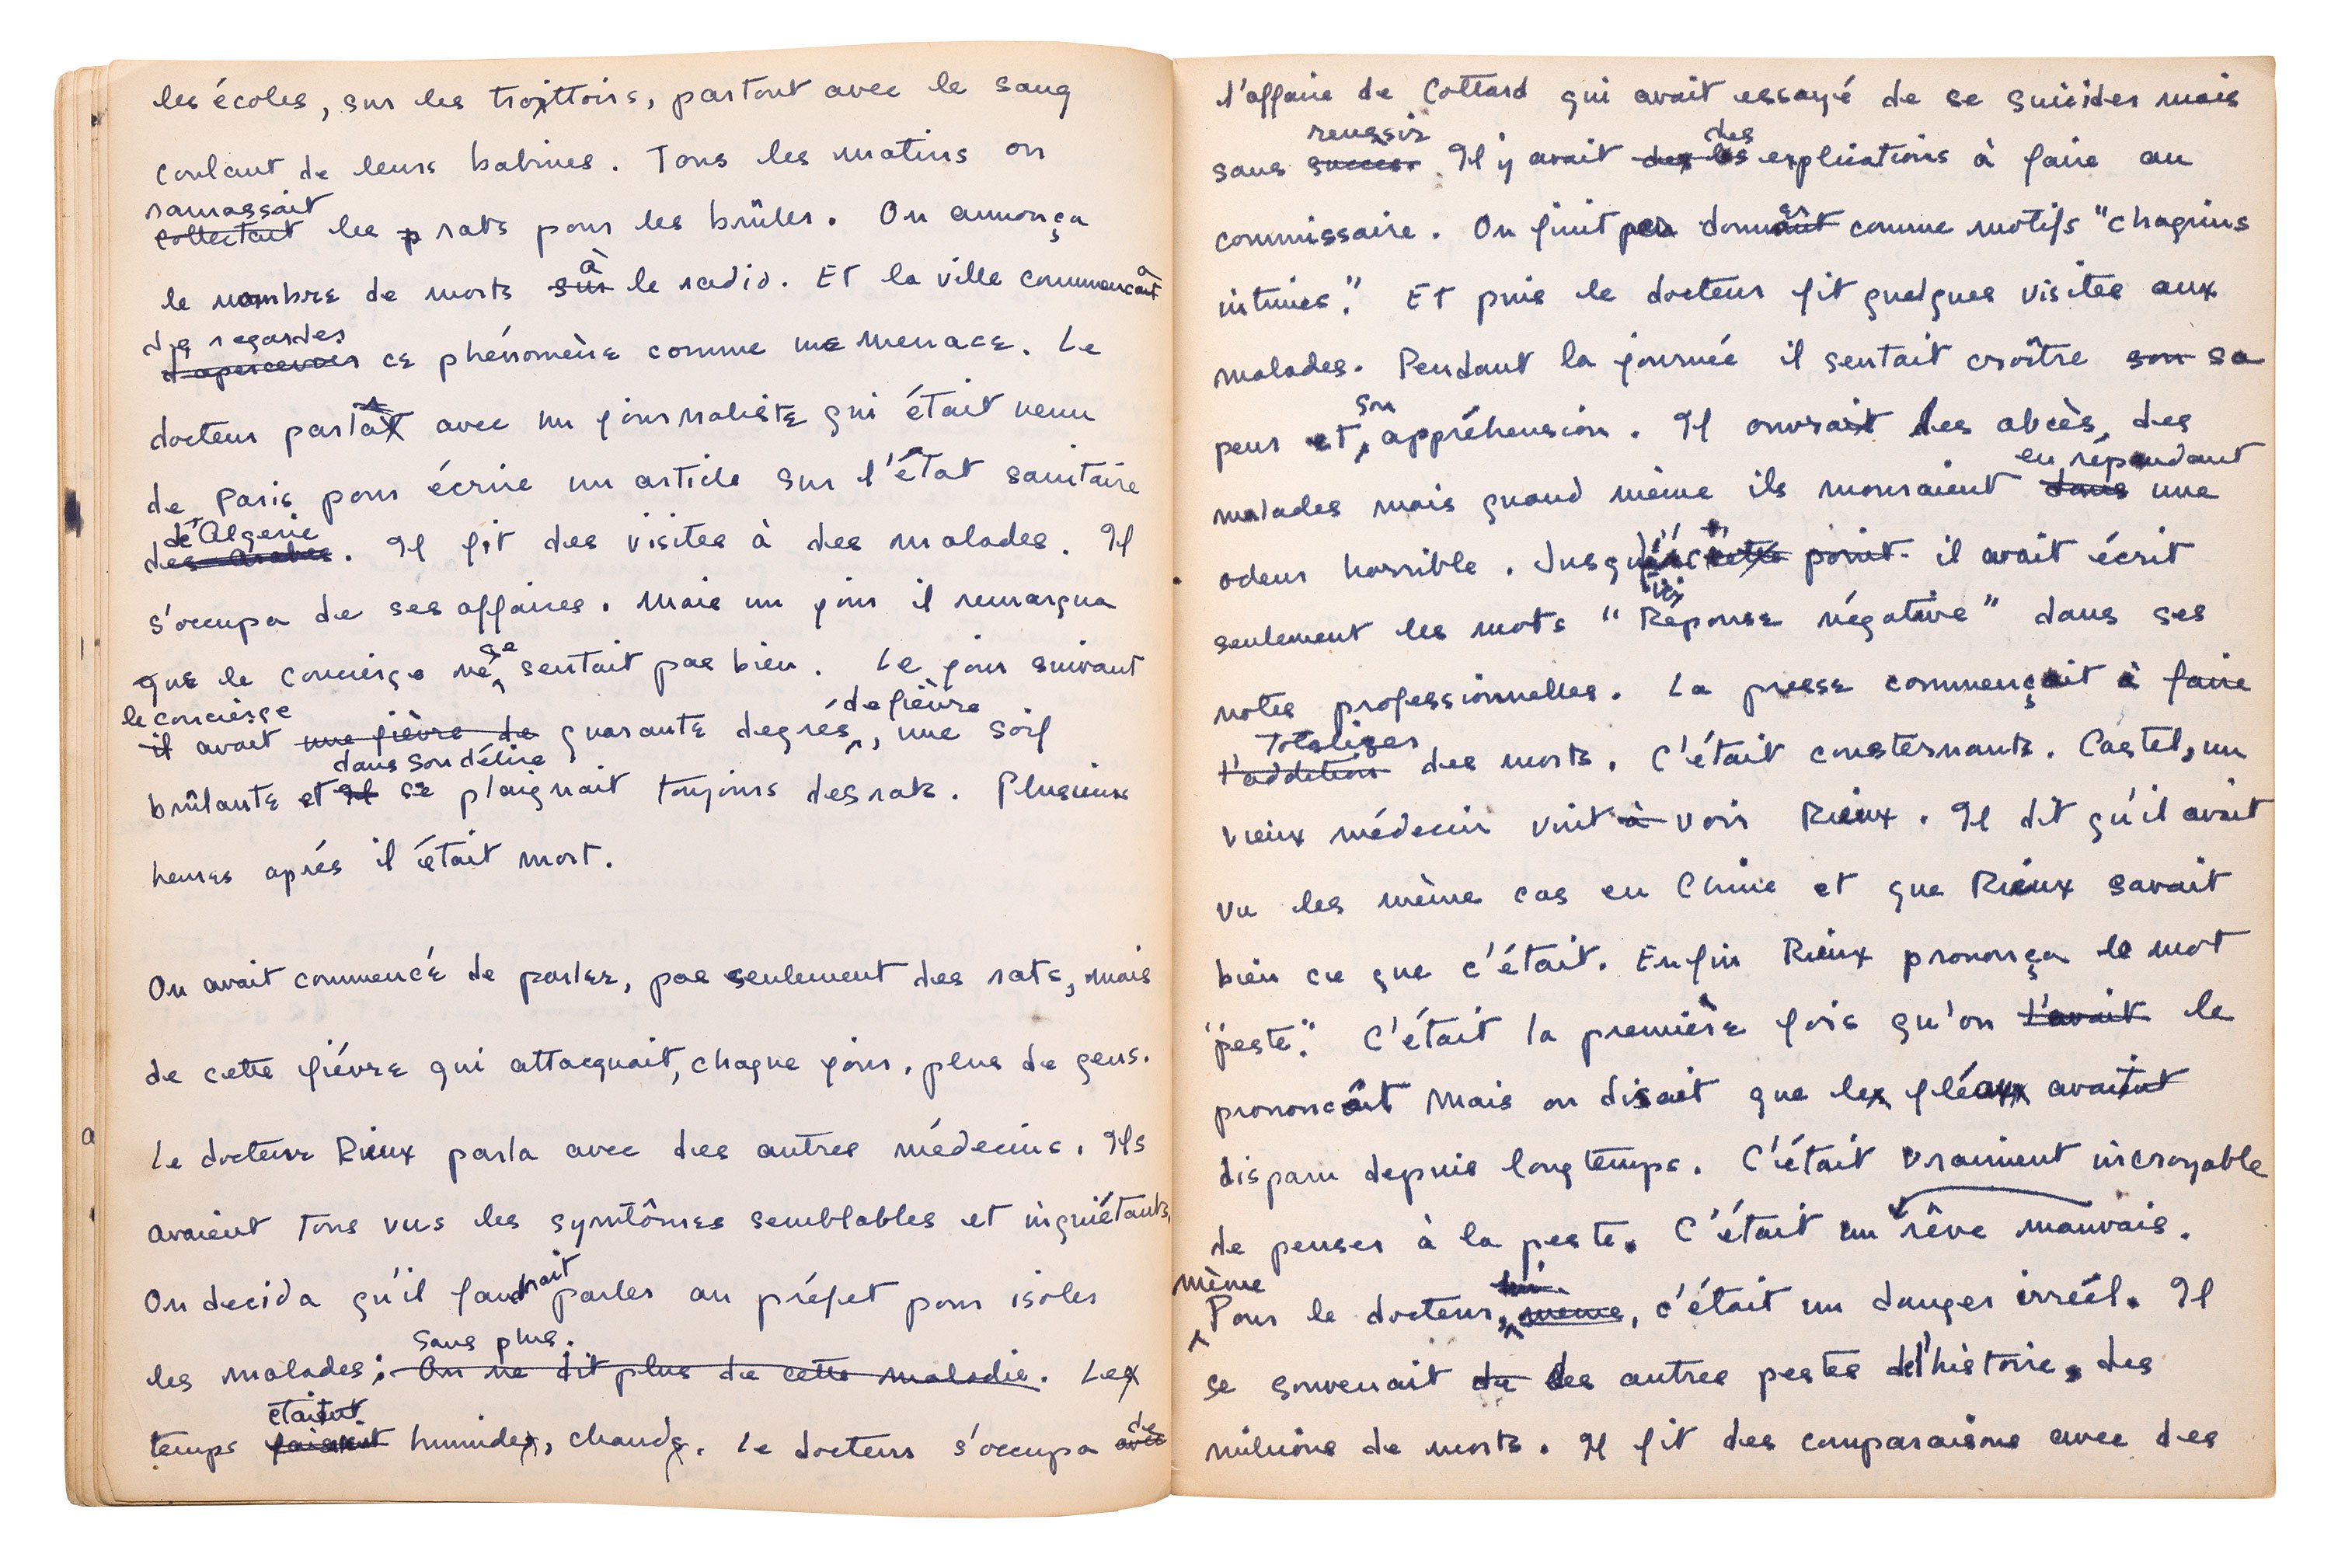 les écoles, sur les trottoirs, partout avec le sang
coulant de leurs babines. Tous les matins on
ramassait
collectait les rats pour les brûler. On annonça
à
le nombre de morts sur le radio. Et la ville commença
de regarder
d'apercevoir ce phénomène comme une menace. Le
docteur parla avec un journaliste qui était venu
de Paris pour écrire un article sur l'état sanitaire
d'Algerie
des arabes. Il fit des visites à des malades. Il
s'occupa de ses affaires. Mais un jour il remarqua
se
que le concierge ne sentait pas bien. Le jour suivant
le concierge de fièvre
il avait une fièvre de quarante degrés, une soif
dans son délire
brûlante et il se plaignait toujours des rats. Plusieurs
heures après il était mort.
On avait commencé de parler, pas seulement des rats, mais
de cette fiévre qui attacquait, chaque jour, plus de gens.
Le docteur Rieux parla avec des autres médecins. Ils
avaient tous vus les symtômes semblables et inquiétants.
On decida qu'il faudrait parler au préfet pour isoler
sans plus.
les malades; On ne dit plus de cette maladie. Le
étaient de
temps faisait humide, chaud. Le docteur s'occupa avec
l'affaire de Cottard qui avait essayé de se suicider mais
reussir des
sans succès. Il y avait des les explications à faire au
er
commissaire. On finit par donnait comme motifs "chagrins
intimes." Et puis le docteur fit quelques visites aux
malades. Pendant la journée il sentait croître son sa
son
peur et, appréhension. Il ouvrait les abcès, des
en répandant
malades mais quand même ils mouraient dans une
odeur horrible. Jusqu'ici cette point il avait écrit
seulement les mots "Réponse négative" dans ses
notes professionnelles. La presse commençait à faire
Totaliser
l'addition des morts. C'était consternants. Castel, un
vieux médecin vint à voir Rieux. Il dit qu'il avait
vu les même cas en Chine et que Rieux savait
bien ce que c'était. Enfin Rieux prononça le mot
"peste." C'était la première fois qu'on l'avait le
prononcait Mais on disait que le fléau avaient
disparu depuis longtemps. C'était vraiment incroyable
de penser à la peste. C'était un rêve mauvais.
même lui
Pour le docteur, même, c'était un danger irréel. Il
se souvenait du des autres pestes de l'histoire, des
milions de morts. Il fit des comparaisons avec des